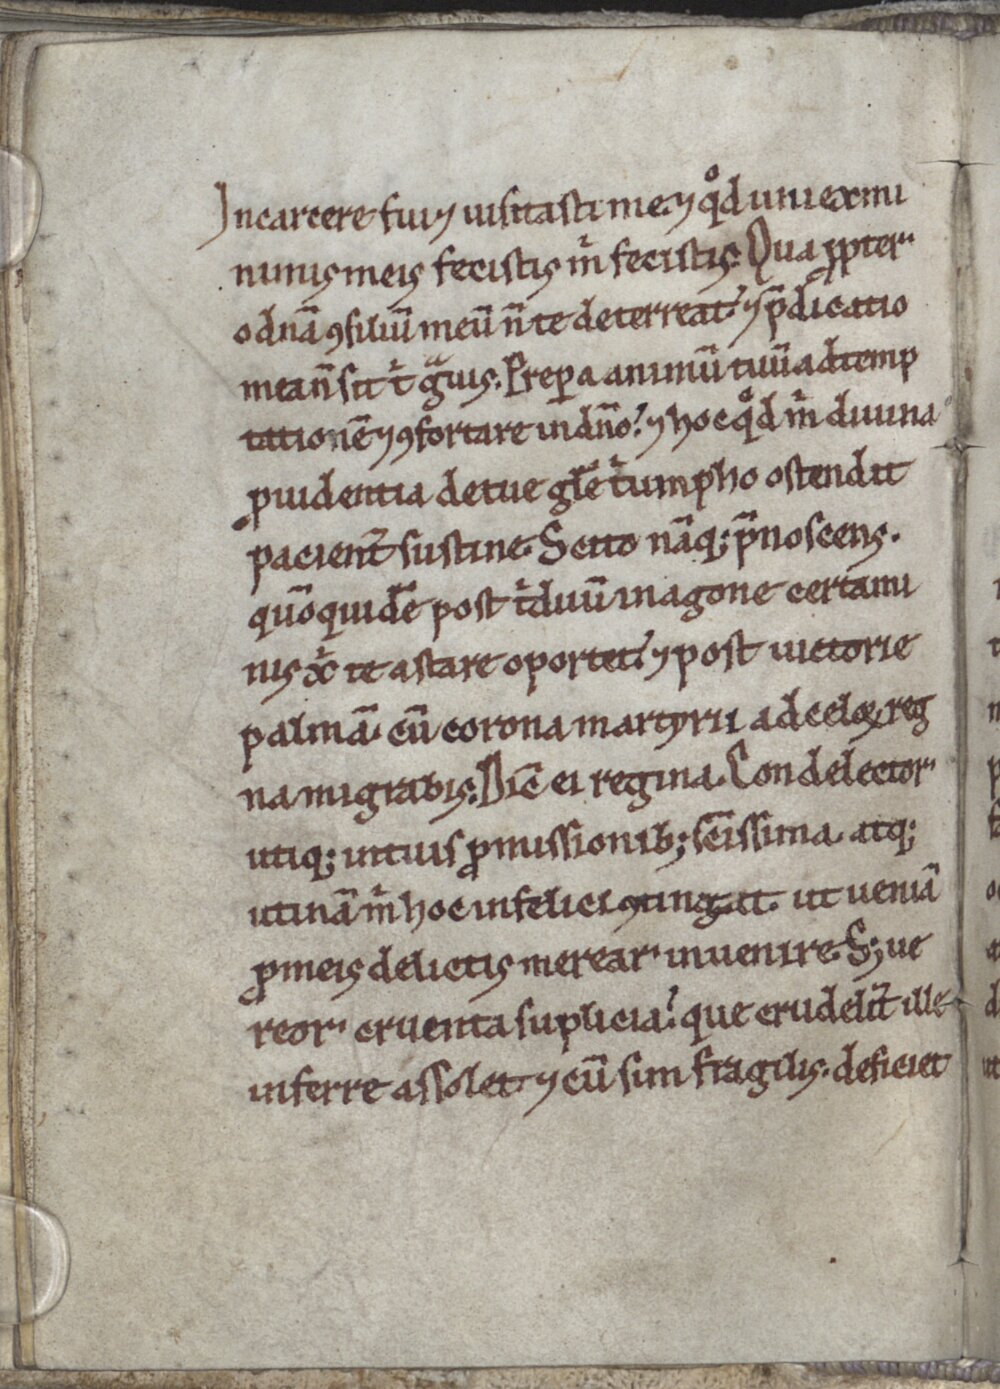 Incarcere fui ⁊ uisitasti me. ⁊ qͦd uni ex mi
nimis meis fecistis m̍ fecistis. Qua ꝓpter
o dn̄a ꝯsiliū meū n̄ te deterreat. ⁊ p̄dicatio
mea n̄ sit t̍ gͣuis. Prepara animū tuū ad temp
tationē ⁊ ꝯfortare in dn̄o. ⁊ hoc qͦd m̍ diuina
ꝓuidentia de tue gl̄e t̍umpho ostendit
pacient̄ sustine. Scito nāq; p̄noscens.
qm̄o quidē post t̍duū in agone certami
nis x̍ te astare oportet. ⁊ post uictorie
palmā. cū corona martyrii ad celoꝝ reg
na migrabis. Dic̄ ei regina. Condelector
utiq; in tuis ꝓmissionib; sc̄issima. atq;
utinā m̍ hoc infelici ꝯtingat. ut ueniā
ꝓ meis delictis merear inuenire. S; ue
reor cruenta suplicia. que crudelit̄ ille
inferre assolet. ⁊ cū sim fragilis. deficiet